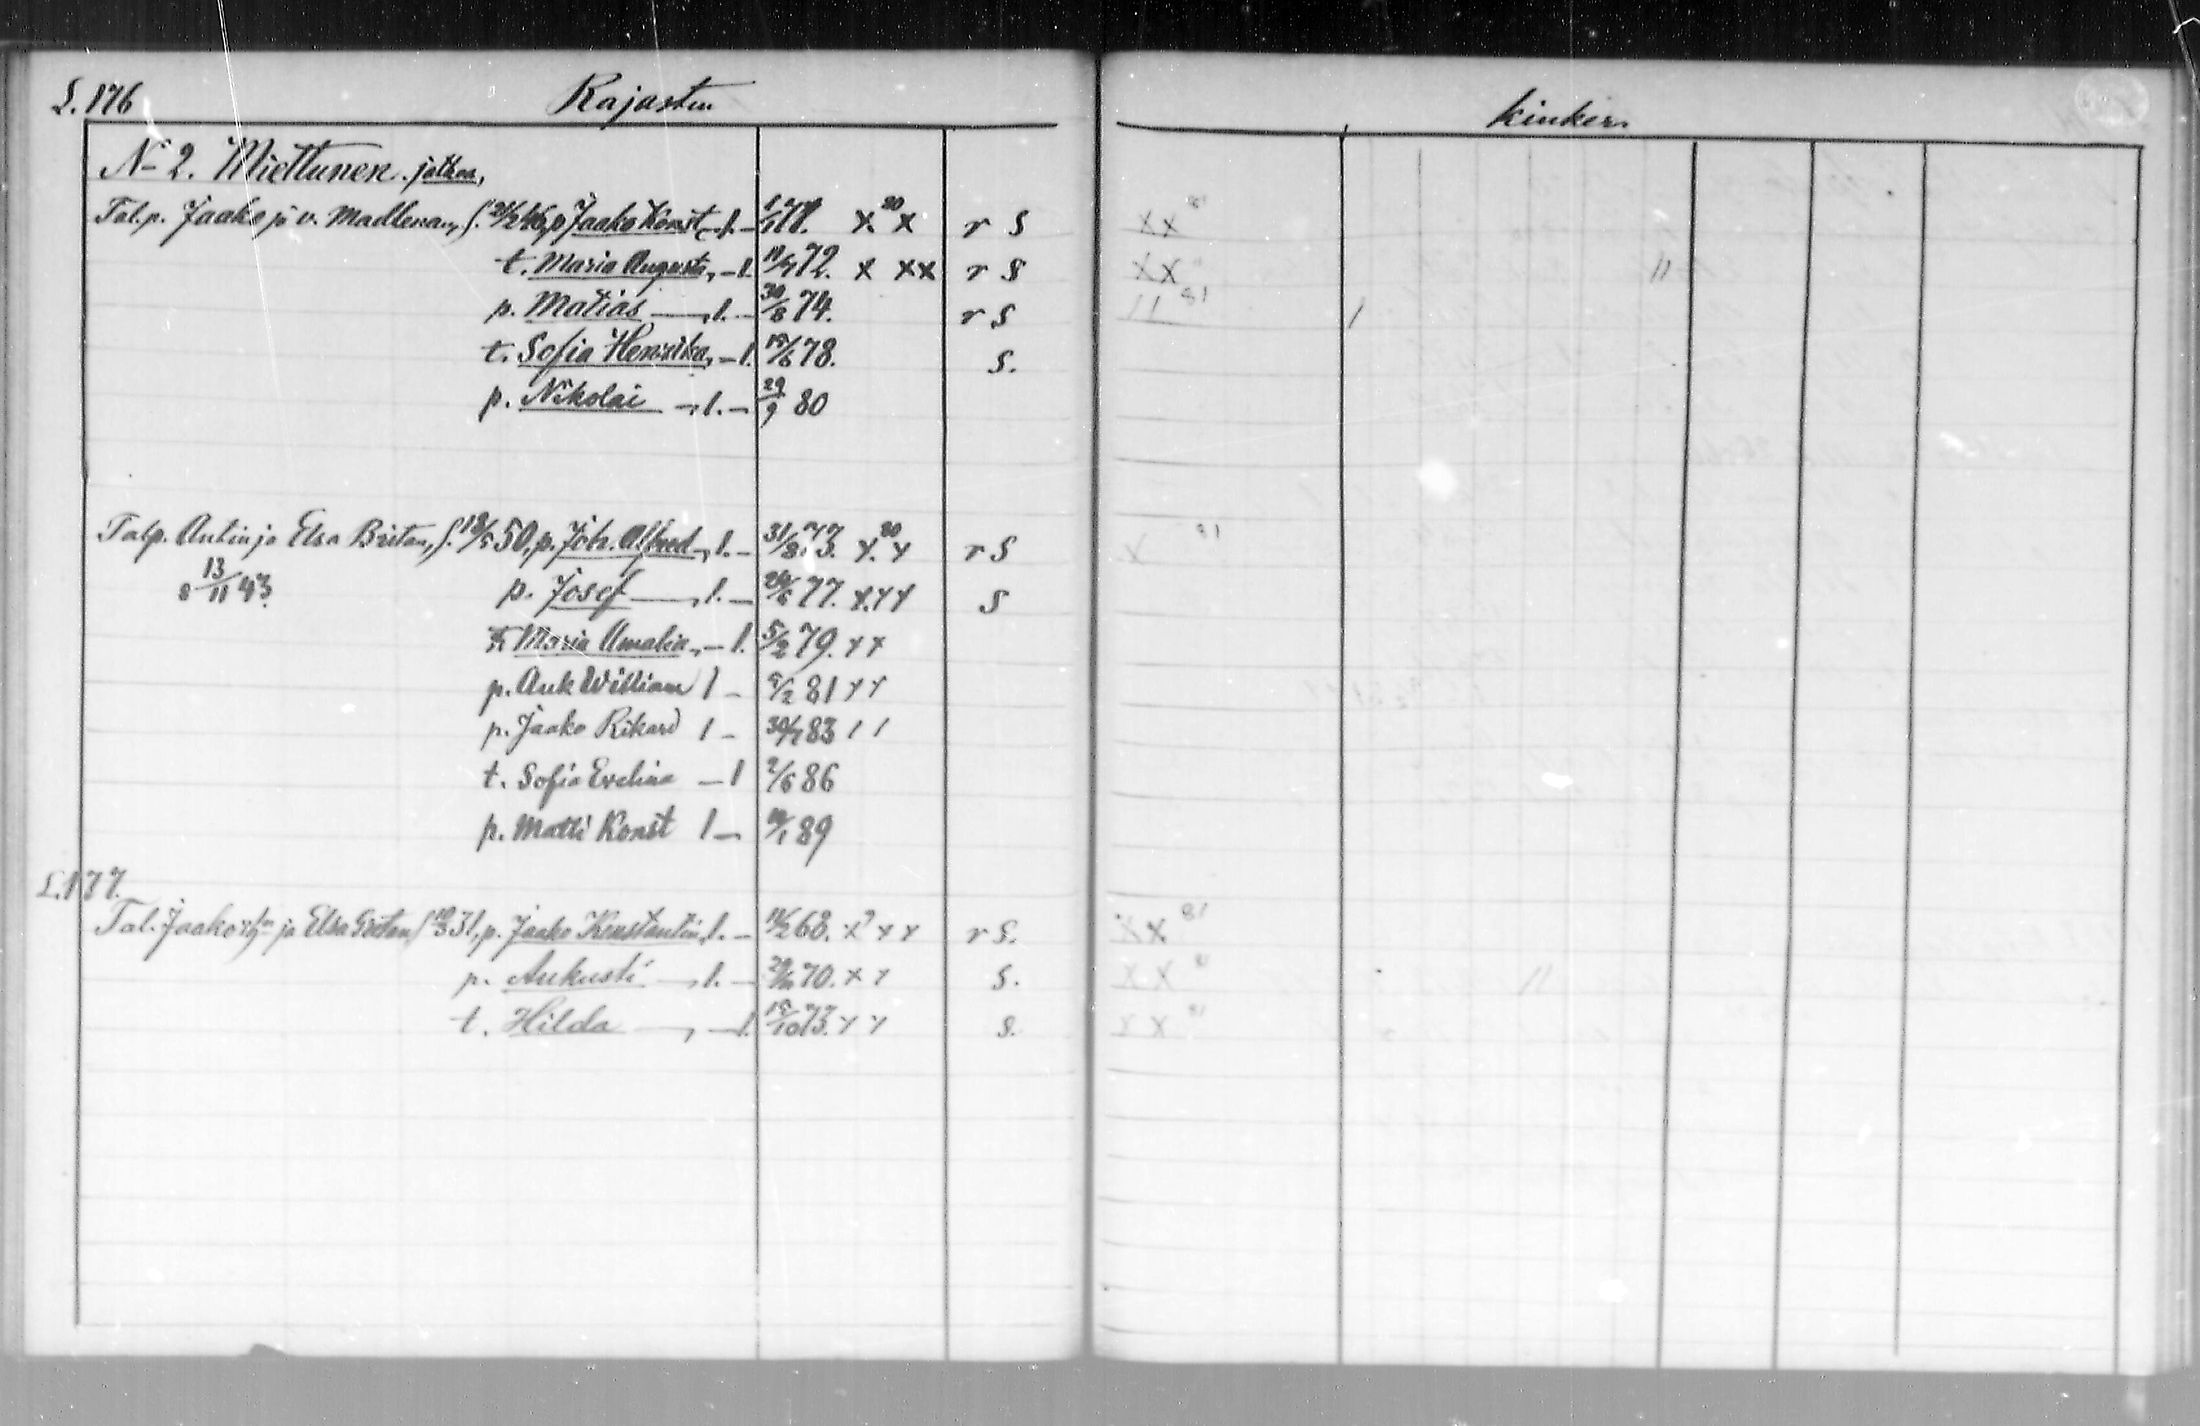 S. 176 Rajasten kinkeri
N= 2. Miettunen. jatkoa,
Tal.p. Jaako ja v. Madlenan, s. 46, p. Jaako Konst, l. – 1/1 71. x. 80 x r S xx 81
t. Maria Augusta, – l. 11/4 72. x xx r S xx
p. Matias —, l. – 30/8 74. r S 11 81
t. Sofia Henrika, – l. 15/6 78. S.
p. Nikolai —, l. – 29/9 80
Talp. Antin ja Elsa Britan, s. 18/5 50, p. Joh. Alfred, l. – 31/8 73. x. 80 x r S x 81
13/11 43. p. Josef —, l. – 77. x. x x S
t. Maria Amalia, – l. 5/2 79. x x
p. Auk William l – 9/2 81 x x
p. Jaako Rikard l – 83 1 1
t. Sofia Evelina – l 2/6 86
p. Matti Konst l – 89
S. 177.
Tal. Jaako ja Elsa Gretan s. 31, p. Jaako Konstantin, l. – 11/2 68. x x x r S. xx 81
p. Aukusti —, l. – 70. x x S. xx 81
t. Hilda —, – l. 15/10 73. x x S. xx 81